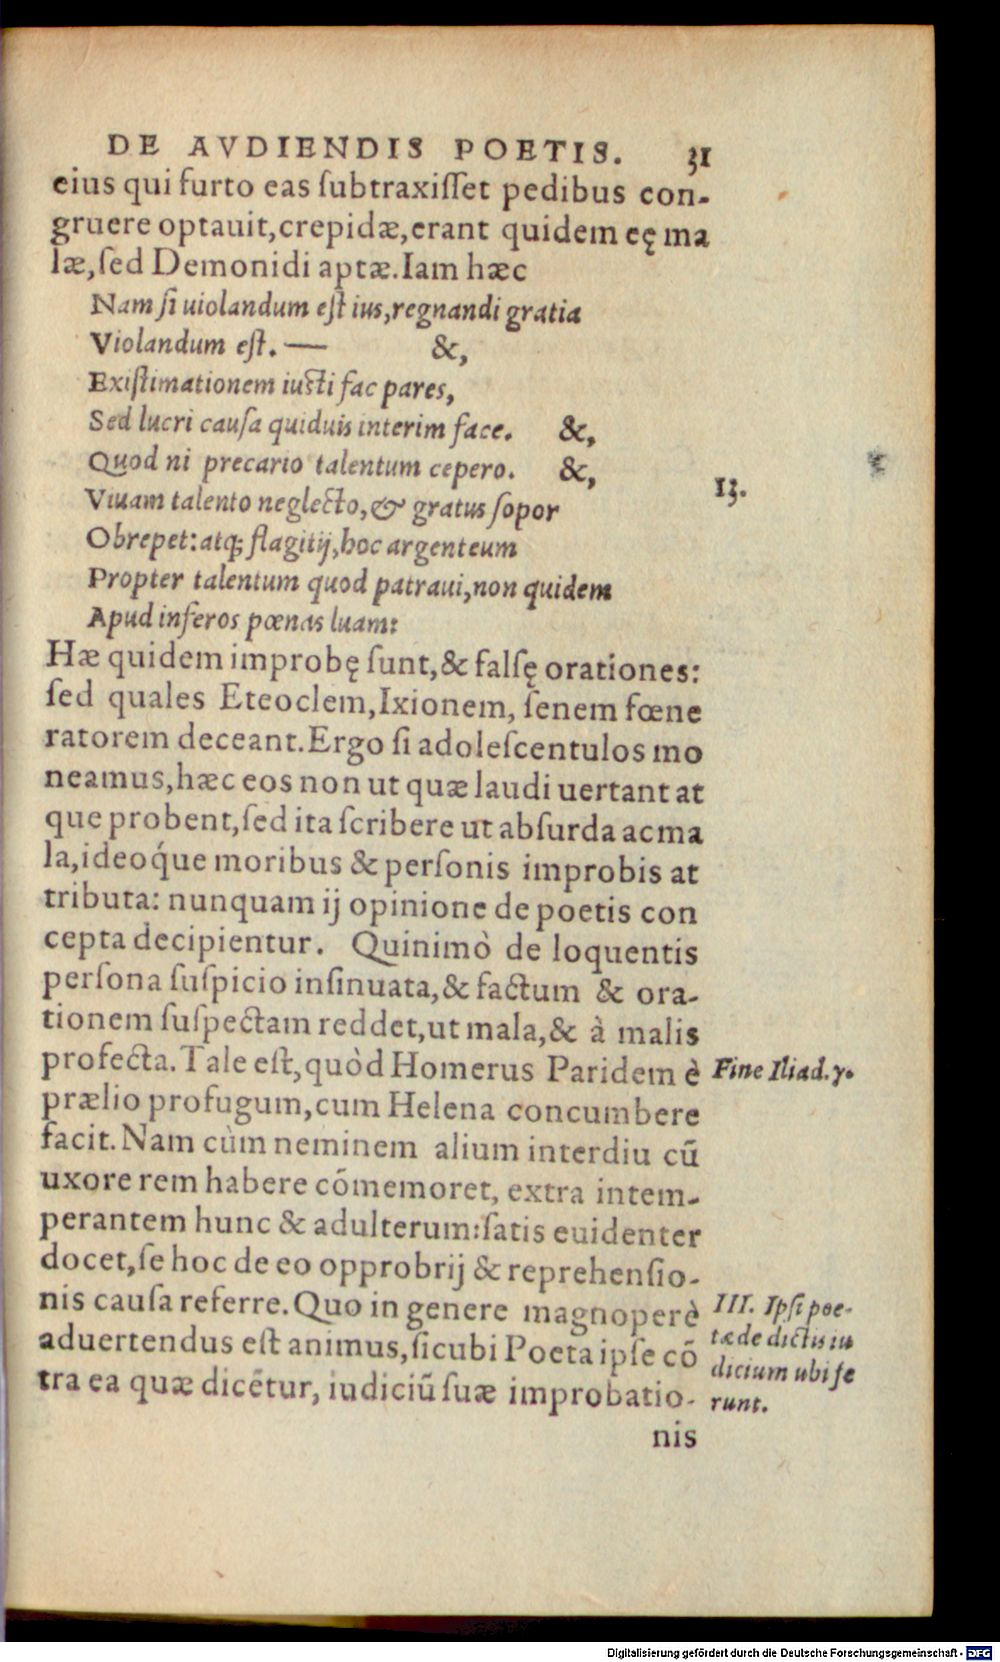 DE AVDIENDIS POETIS. 31
eius qui furto eas ſubtraxiſſet pedibus con-
gruere optauit, crepidæ, erant quidem eę ma
læ, ſed Demonidi aptæ. Iam hæc
Nam ſi uiolandum eſt ius, regnandi gratia
Violandum eſt. — &,
Exiſtimationem iuſti fac pares,
Sed lucri cauſa quiduis interim face. &,
Quod ni precario talentum cepero. &,
13.
Viuam talento neglecto, & gratus ſopor
Obrepet: atq; flagitij, hoc argenteum
Propter talentum quod patraui, non quidem
Apud inferos pœnas luam:
Hæ quidem improbę ſunt, & falſę orationes:
ſed quales Eteoclem, Ixionem, ſenem fœne
ratorem deceant. Ergo ſi adoleſcentulos mo
neamus, hæc eos non ut quæ laudi uertant at
que probent, ſed ita ſcribere ut abſurda ac ma
la, ideoq́ue moribus & perſonis improbis at
tributa: nunquam ij opinione de poetis con
cepta decipientur. Quinimò de loquentis
perſona ſuſpicio inſinuata, & factum & ora-
tionem ſuſpectam reddet, ut mala, & à malis
profecta. Tale eſt, quòd Homerus Paridem è
Fine Iliad. γ.
prælio profugum, cum Helena concumbere
facit. Nam cùm neminem alium interdiu cū
uxore rem habere cōmemoret, extra intem-
perantem hunc & adulterum: ſatis euidenter
docet, ſe hoc de eo opprobrij & reprehenſio-
nis cauſa referre. Quo in genere magnoperè
aduertendus eſt animus, ſicubi Poeta ipſe cō
tra ea quæ dicētur, iudiciū ſuæ improbatio-
III. Ipſi poe-
tæ de dictis iu
dicium ubi fe
runt.
nis
Digitalisierung gefördert durch die Deutsche Forschungsgemeinschaft - DFG